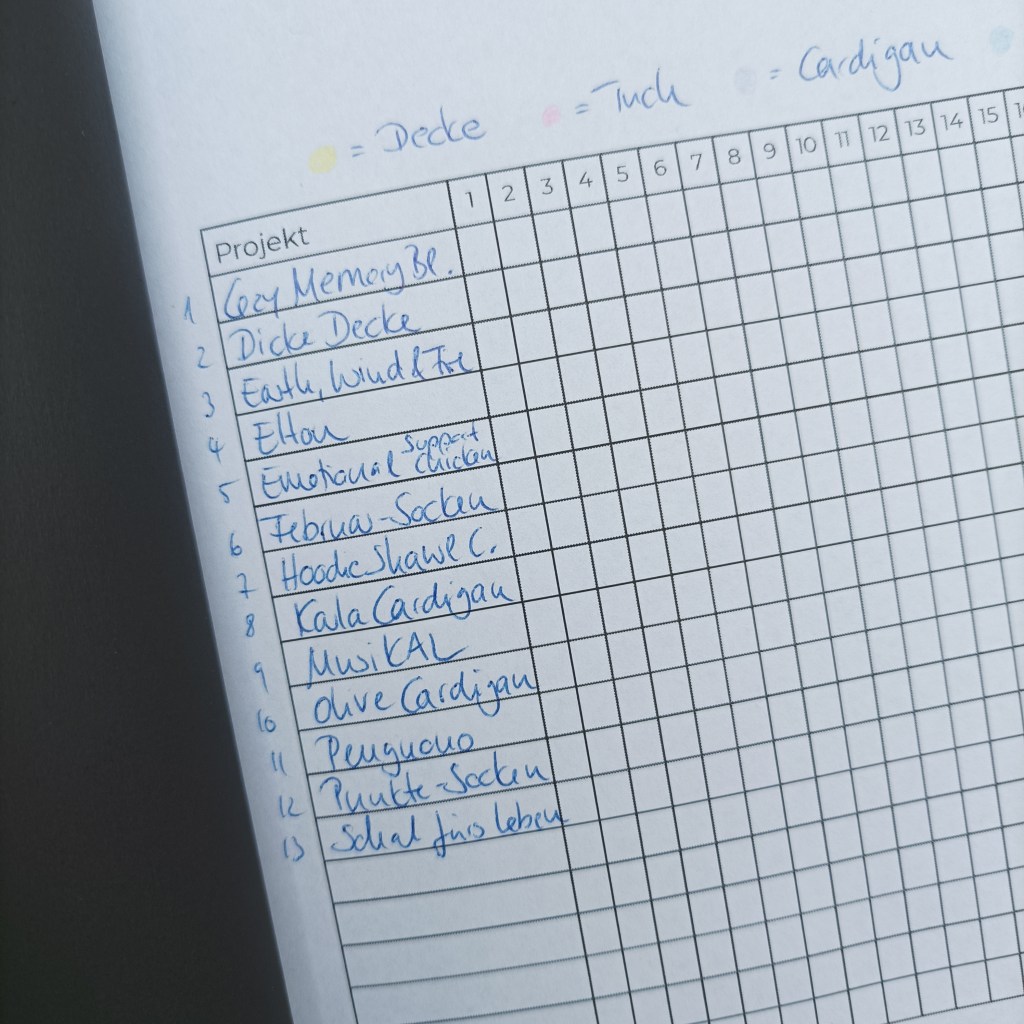 = Decke = Tuch = Cardigan
Projekt 1 2 3 4 5 6 7 8 9 10 11 12 13 14 15
1 Cozy Memory Bl.
2 Dicke Decke
3 Earth, Wind & Fire
4 Elton
5 Emotional Support Chicken
6 Februar-Socken
7 Hoodie Shawl C.
8 Kala Cardigan
9 MusiKAL
10 Olive Cardigan
11 Penguono
12 Punkte-Socken
13 Schal fürs Leben